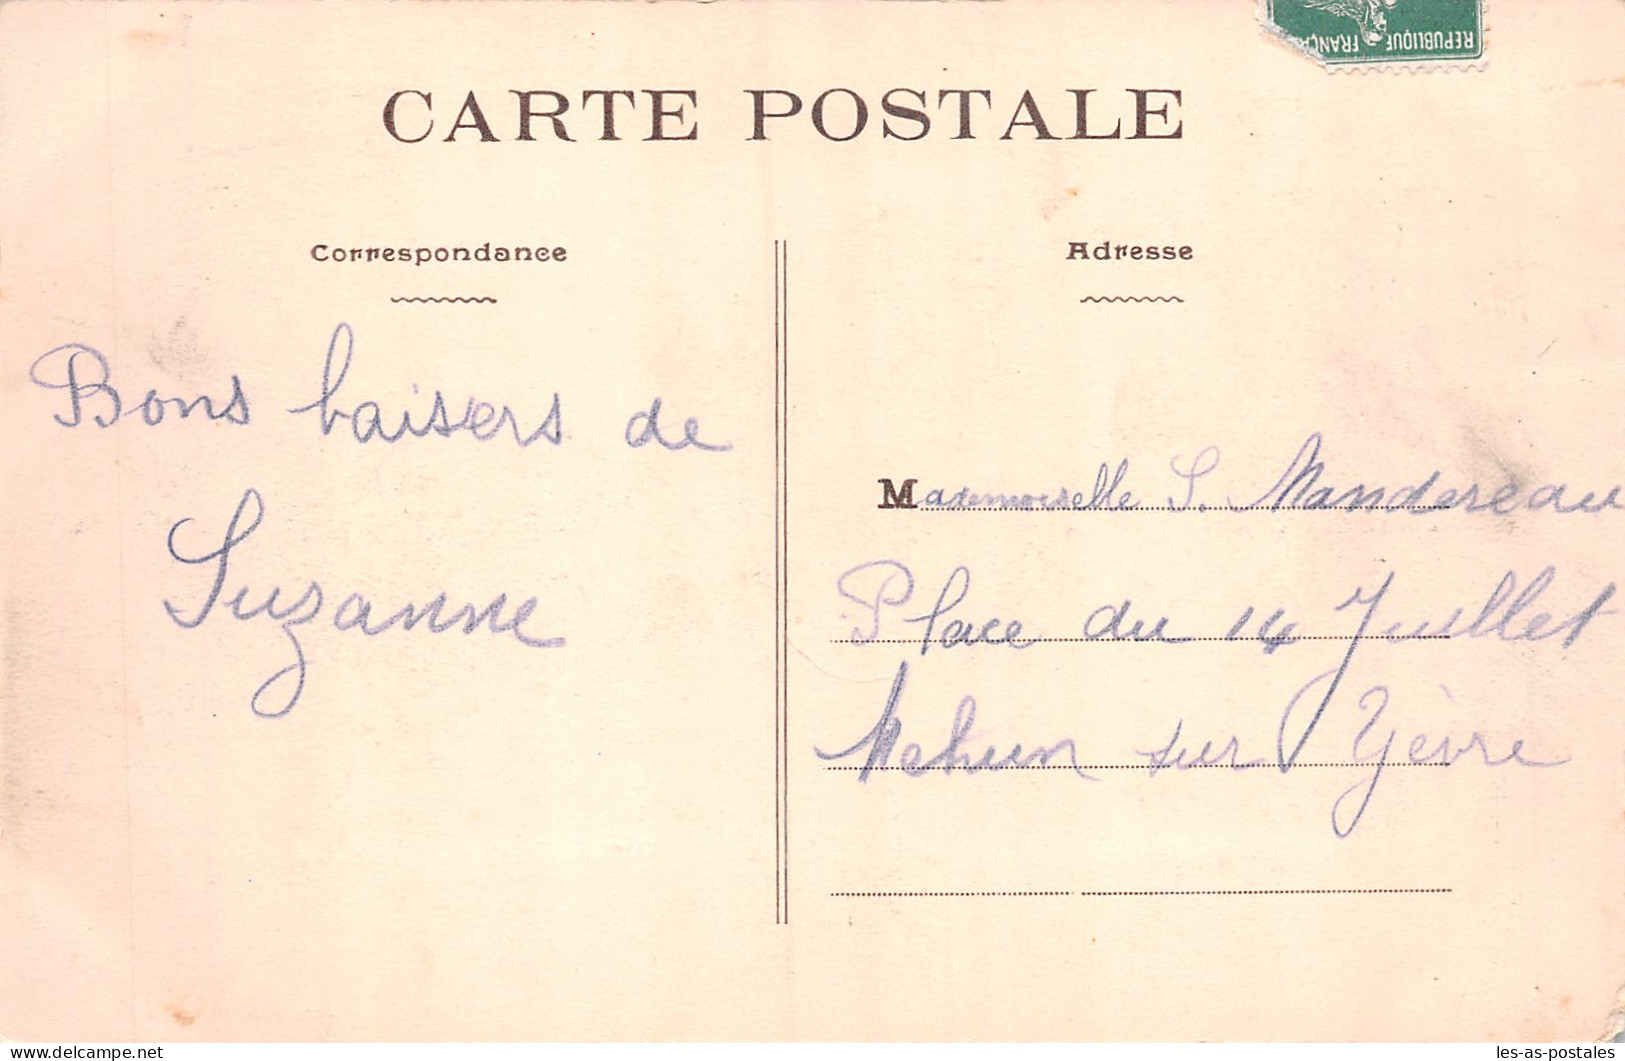 REPUBLIQUE FRANÇA
CARTE POSTALE
Correspondance
Adresse
Bons baisers de
Suzanne
Mademoiselle S. Mandereau
Place du 14 Juillet
Mehun sur Yèvre
delcampe.net
les-as-postales